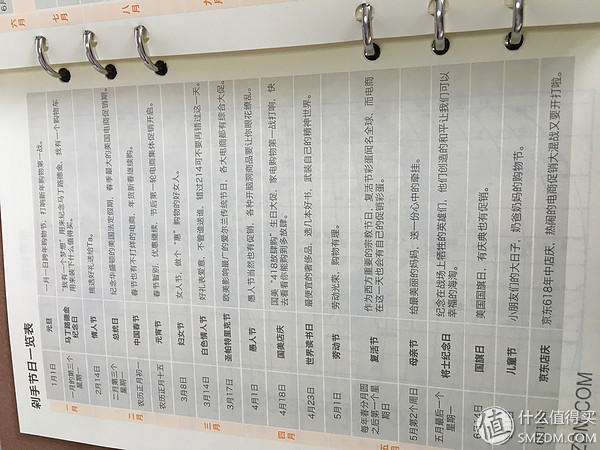 剁手节日一览表
一月
1月1日 元旦 一月一日跨年购物节，打响新年购物第一战。
一月的第三个星期一 马丁路德金纪念日 "我有一个梦想"用来纪念马丁路德金，我有一个购物车用来装下什么值得买。
二月
2月14日 情人节 挑选好礼送给Ta。
二月第三个星期一 总统日 纪念华盛顿的美国法定假期，春季最大的美国电商促销期。
农历正月初一 中国春节 春节也有不打烊的电商，年货新春继续购。
农历正月十五 元宵节 春节暂别，优惠继续，节后第一轮电商集体促销开启。
三月
3月8日 妇女节 女人节，做个"惠"购物的好女人。
3月14日 白色情人节 好礼表爱意，不管谁送谁，错过214可不要再错过这一天。
3月17日 圣帕特里克节 欧美影响最广的爱尔兰传统节日，各大电商都有综合大促。
四月
4月1日 愚人节 愚人节当然也有促销，各种开脑洞商品要让你眼花缭乱。
4月18日 国美店庆 国美"418放肆购"生日大促，家电购物第一战打响，快去看看你能购到多放肆。
4月23日 世界读书日 最便宜的奢侈品，选几本好书，武装自己的精神世界。
5月1日 劳动节 劳动光荣，购物有理。
每年春分月圆之后第一个星期日 复活节 作为西方重要的宗教节日，复活节彩蛋闻名全球，而电商在这一天也会有自己的促销彩蛋。
五月
5月第2个周日 母亲节 给最美丽的妈妈，送一份心中的牵挂。
五月最后一个星期一 将士纪念日 纪念在战场上牺牲的英雄们，他们创造的和平让我们可以幸福的海淘。
国旗日 美国国旗日，有庆典也有促销。
儿童节 小朋友们的大日子，奶爸奶妈的购物节。
京东店庆 京东618年中店庆，热闹的电商促销大混战又要开打啦。
六月
七月
八月
九月
值 什么值得买
SMZDM.COM
ZDM.COM